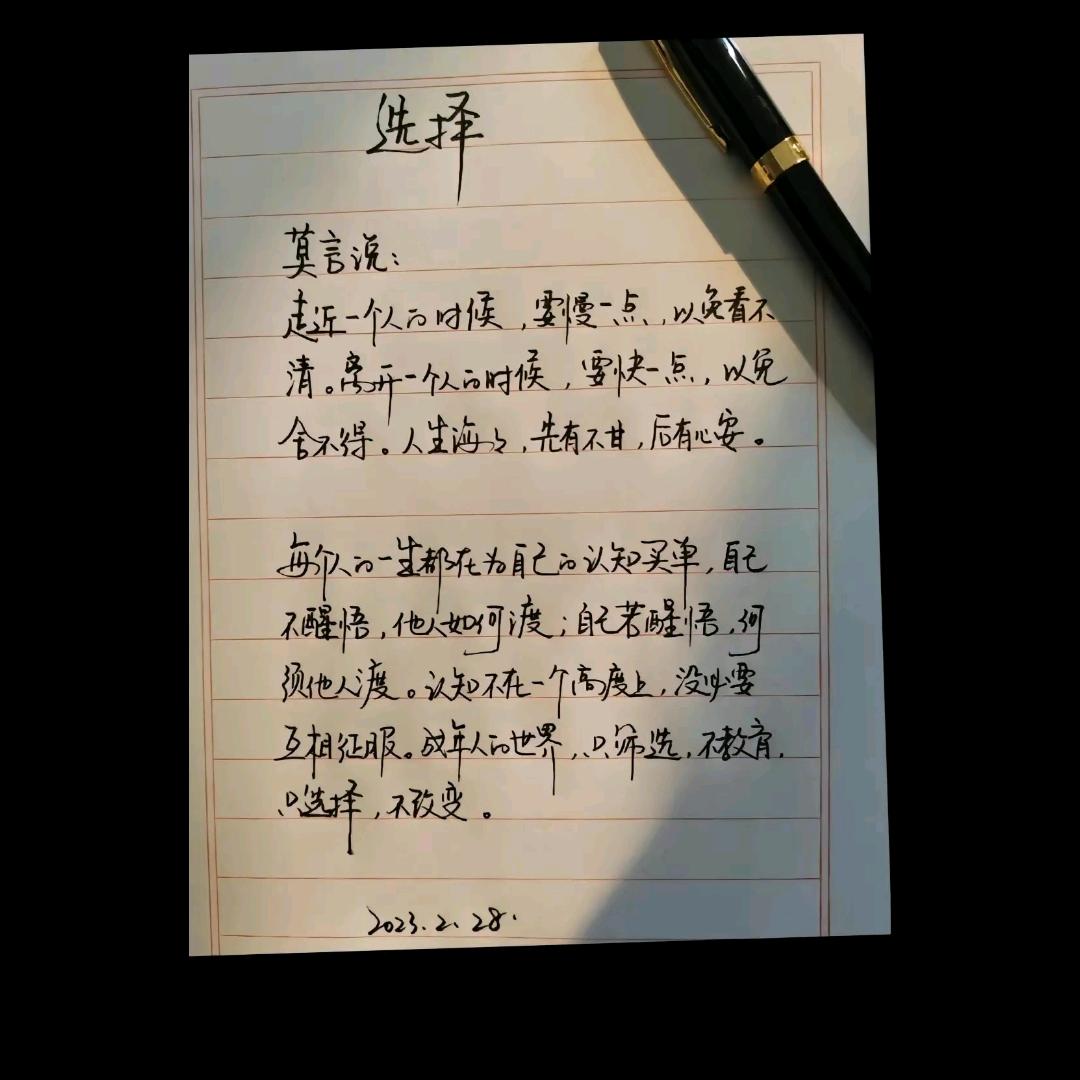 选择
莫言说：
走近一个人的时候，要慢一点，以免看不
清。离开一个人的时候，要快一点，以免
舍不得。人生海海，先有不甘，后有心安。
每个人的一生都在为自己的认知买单，自己
不醒悟，他人如何渡；自己若醒悟，何
须他人渡。认知不在一个高度上，没必要
互相征服。成年人的世界，只筛选，不教育，
只选择，不改变。
2023.2.28.